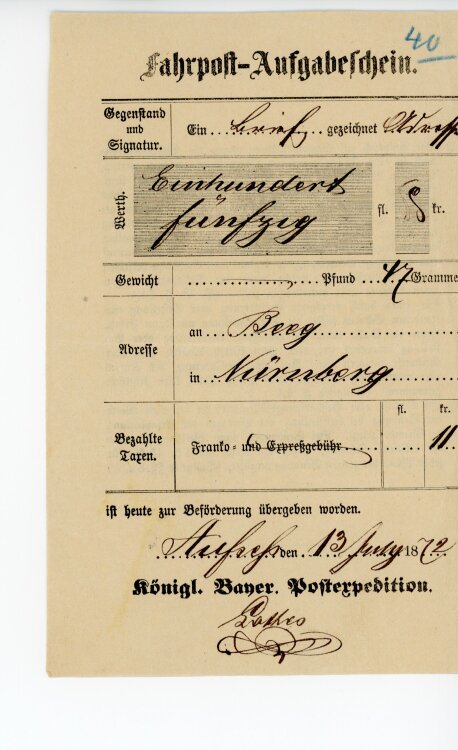 40
Fahrpost-Aufgabeschein.
Gegenstand
und
Signatur.
Ein Brief gezeichnet Adresse
Werth.
Einhundert
fünfzig
fl. kr.
Gewicht
Pfund 47 Gramme
Adresse
an Beeg
in Nürnberg
Bezahlte
Taxen.
Franko- und Expreßgebühr
fl. kr.
11
ist heute zur Beförderung übergeben worden.
den 13 July 1872
Königl. Bayer. Postexpedition.